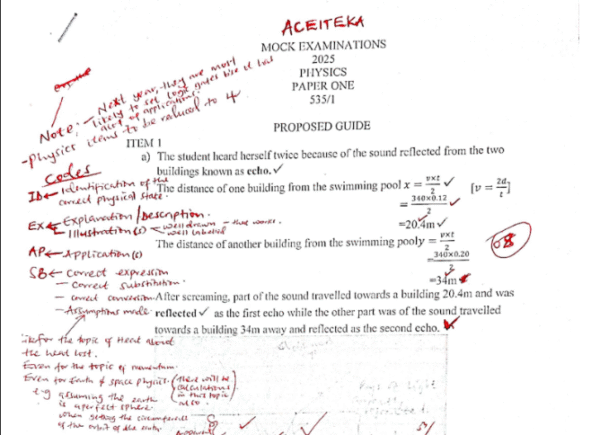 ACEITEKA
MOCK EXAMINATIONS
2025
PHYSICS
PAPER ONE
535/1
PROPOSED GUIDE
Note; - Next year, they are most
likely to set logic gates bse it has
alot of applications.
- Physics items to be reduced to 4
ITEM 1
a) The student heard herself twice because of the sound reflected from the two
buildings known as echo. ✓
The distance of one building from the swimming pool x = v×t/2 ✓ [v = 2d/t]
= 340×0.12/2 ✓
=20.4m ✓
The distance of another building from the swimming pooly = v×t/2
= 340×0.20/2
=34m
08
After screaming, part of the sound travelled towards a building 20.4m and was
reflected ✓ as the first echo while the other part was of the sound travelled
towards a building 34m away and reflected as the second echo.
Codes
ID ← Identification of the
correct physical state.
EX ← Explanation / Description.
Illustration(s) ← well drawn - that works.
well labelled
AP ← Application(s)
SB ← Correct expression
- Correct substitution
- correct conversion
- Assumptions made
for the topic of Heat about
the heat lost.
Even for the topic of momentum
Even for Earth & space physics. (there will be
calculations
in this topic
also)
e.g assuming the earth
is a perfect sphere
when getting the circumference
of the orbit of the earth.